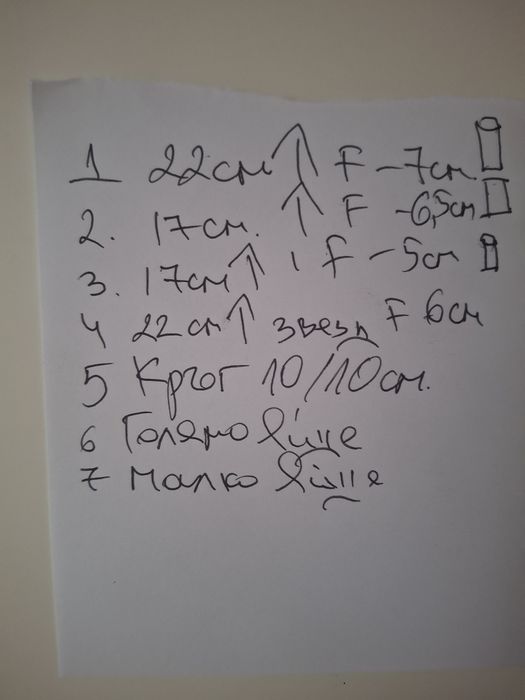 1 22см ↑ F - 7см
2. 17см. ↑ F - 6,5см
3. 17см ↑ , F - 5см
4 22см ↑ звезд F 6см
5 Кръг 10/10см.
6 Голямо Яйце
7 Малко Яйце